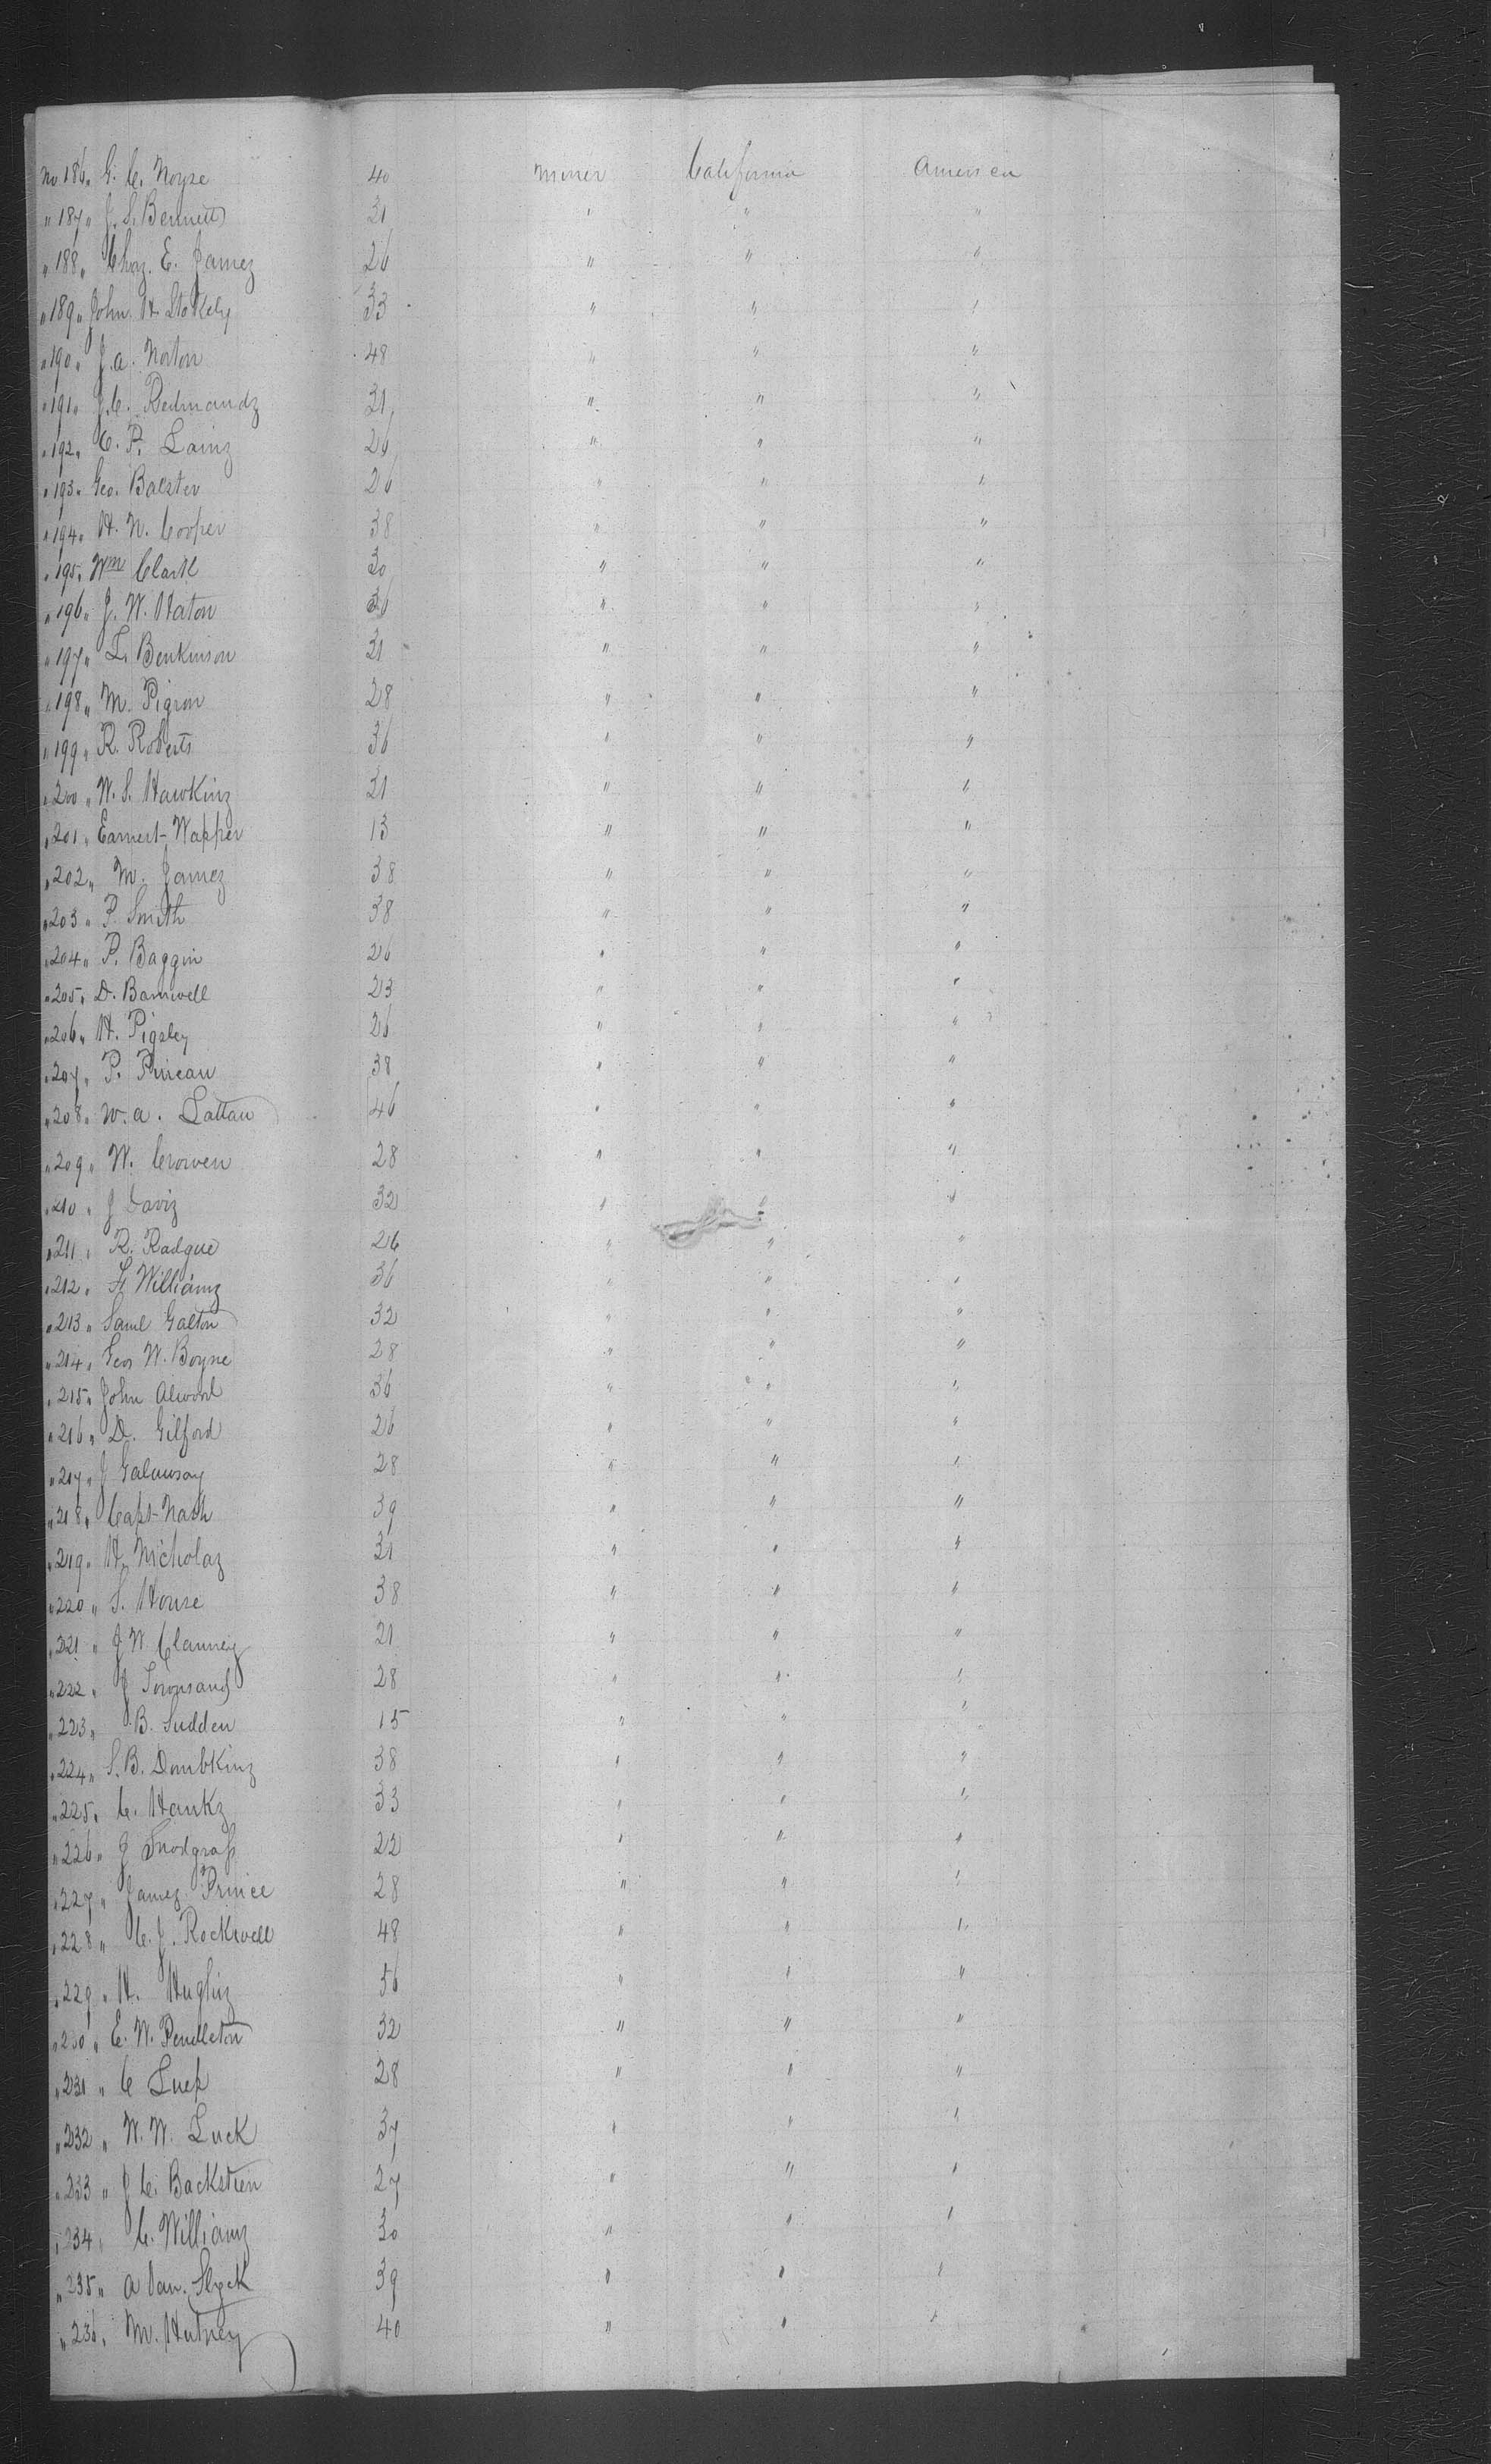 No 186 " G. C. Noyse 40 Miner California American
" 187 " J. S. Bennett 21 " " "
" 188 " Chaz. E. Jamez 26 " " "
" 189 " John H. Stokely 33 " " "
" 190 " J. A. Norton 48 " " "
" 191 " J. C. Redmandz 31 " " "
" 192 " C. P. Lainz 26 " " "
" 193 " Geo. Balster 26 " " "
" 194 " H. N. Cooper 38 " " "
" 195 " Wm Clark 30 " " "
" 196 " J. W. Haton " " "
" 197 " L. Benkinson 21 " " "
" 198 " M. Pigron 28 " " "
" 199 " R. Roberts 36 " " "
" 200 " W. S. Hawkinz 21 " " "
" 201 " Earnest Wapper 13 " " "
" 202 " M. Jamez 38 " " "
" 203 " P. Smith 38 " " "
" 204 " P. Baggin 26 " " "
" 205 " D. Barnwell 23 " " "
" 206 " H. Pigsley 26 " " "
" 207 " P. 38 " " "
" 208 " W. A. Lattan 46 " " "
" 209 " W. Crowen 28 " " "
" 210 " J Daviz 32 " " "
" 211 " R. Radgue 26 " " "
" 212 " Williamz 36 " " "
" 213 " Saml Galton 32 " " "
" 214 " Geo W. Boyne 28 " " "
" 215 " John Alword 36 " " "
" 216 " D. Gilford 26 " " "
" 217 " J 28 " " "
" 218 " Capt Nash 39 " " "
" 219 " H. Nicholaz 31 " " "
" 220 " S. House 38 " " "
" 221 " J W Clanney 21 " " "
" 222 " J Townsand 28 " " "
" 223 " B. Sudden 15 " " "
" 224 " S. B. Dombkinz 38 " " "
" 225 " C. Hankz 33 " " "
" 226 " J Snodgrass 22 " " "
" 227 " Jamez Prince 28 " " "
" 228 " C. J. Rockwell 48 " " "
" 229 " H. Hughz 56 " " "
" 230 " E. W. Pendleton 32 " " "
" 231 " C Luck 28 " " "
" 232 " W. W. Luck 37 " " "
" 233 " J C. Backstien 27 " " "
" 234 " C. Williamz 30 " " "
" 235 " A Van. Slyck 39 " " "
" 236 " M. Hutney 40 " " "